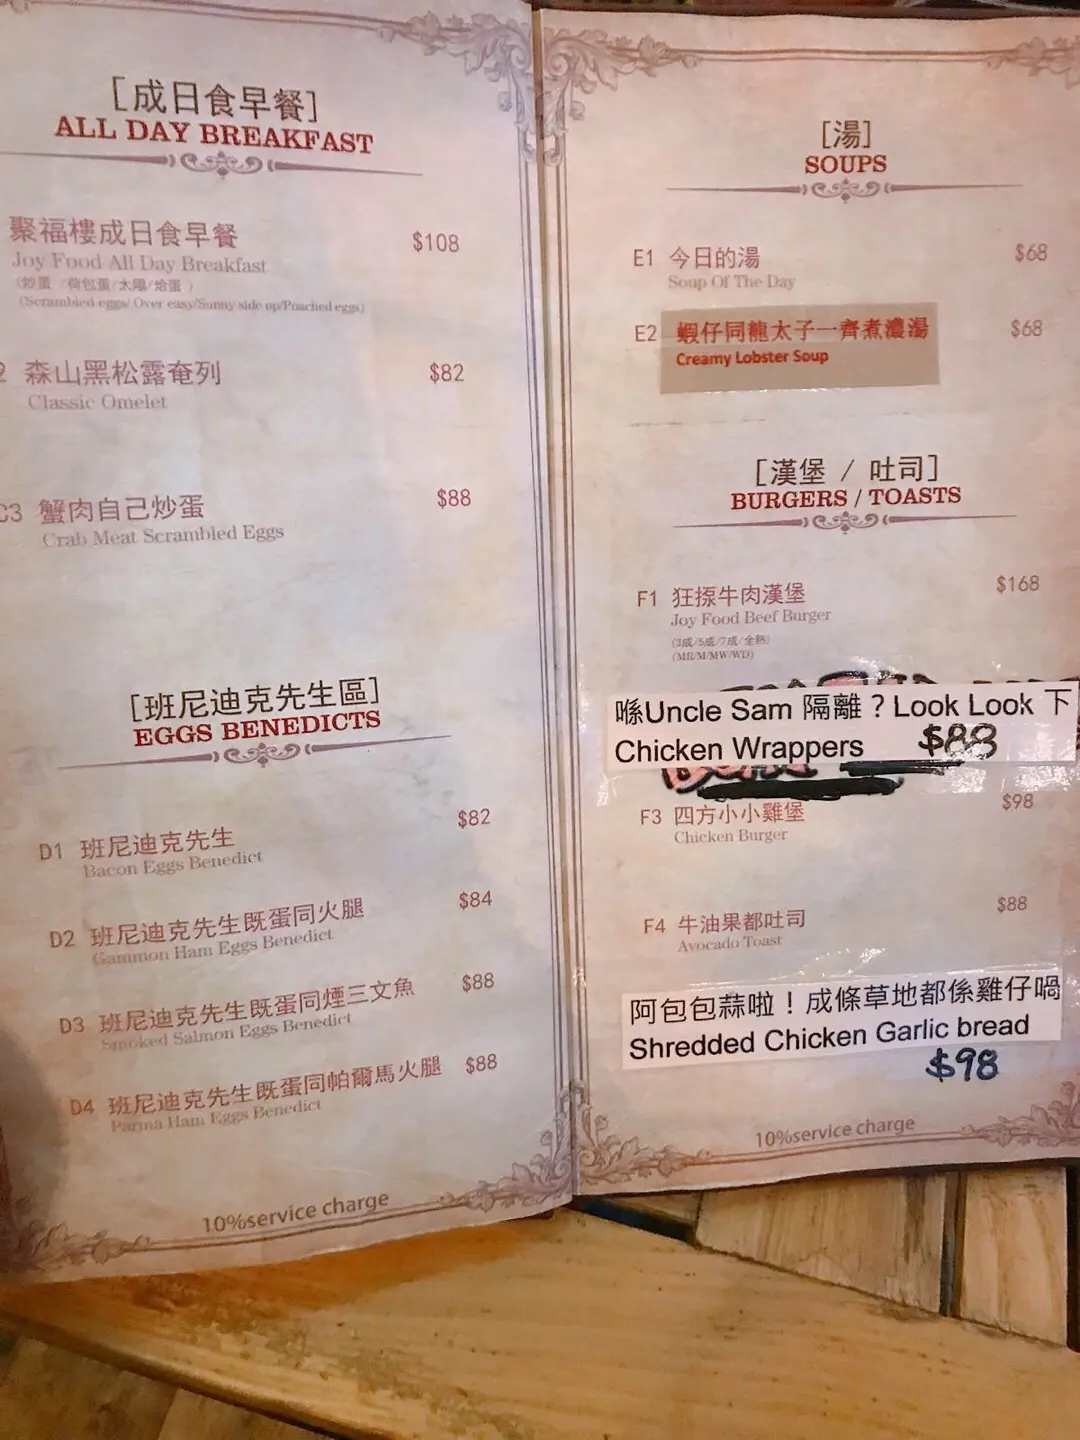 [成日食早餐]
ALL DAY BREAKFAST
聚福樓成日食早餐 $108
Joy Food All Day Breakfast
(炒蛋 /荷包蛋/太陽/烚蛋 )
(Scrambled eggs/ Over easy/Sunny side up/Poached eggs)
2 森山黑松露奄列 $82
Classic Omelet
C3 蟹肉自己炒蛋 $88
Crab Meat Scrambled Eggs
[班尼迪克先生區]
EGGS BENEDICTS
D1 班尼迪克先生 $82
Bacon Eggs Benedict
D2 班尼迪克先生既蛋同火腿 $84
Gammon Ham Eggs Benedict
D3 班尼迪克先生既蛋同煙三文魚 $88
Smoked Salmon Eggs Benedict
D4 班尼迪克先生既蛋同帕爾馬火腿 $88
Parma Ham Eggs Benedict
10%service charge
[湯]
SOUPS
E1 今日的湯 $68
Soup Of The Day
E2 蝦仔同龍太子一齊煮濃湯 $68
Creamy Lobster Soup
[漢堡 / 吐司]
BURGERS / TOASTS
F1 狂揼牛肉漢堡 $168
Joy Food Beef Burger
(3成/5成/7成/全熟)
(MR/M/MW/WD)
喺Uncle Sam 隔離？Look Look 下
Chicken Wrappers $88
F3 四方小小雞堡 $98
Chicken Burger
F4 牛油果都吐司 $88
Avocado Toast
阿包包蒜啦！成條草地都係雞仔喎
Shredded Chicken Garlic bread
$98
10%service charge